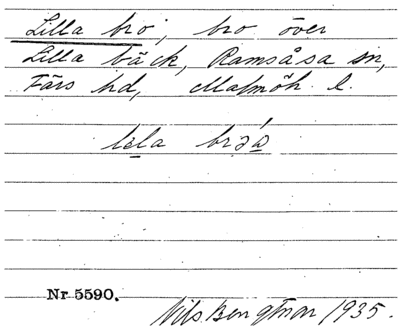 Lilla bro, bro över
Lilla bäck, Ramsåsa sn,
Färs hd, Malmöh. l.
lila
Nr 5590.
Nils Bengtson 1935.